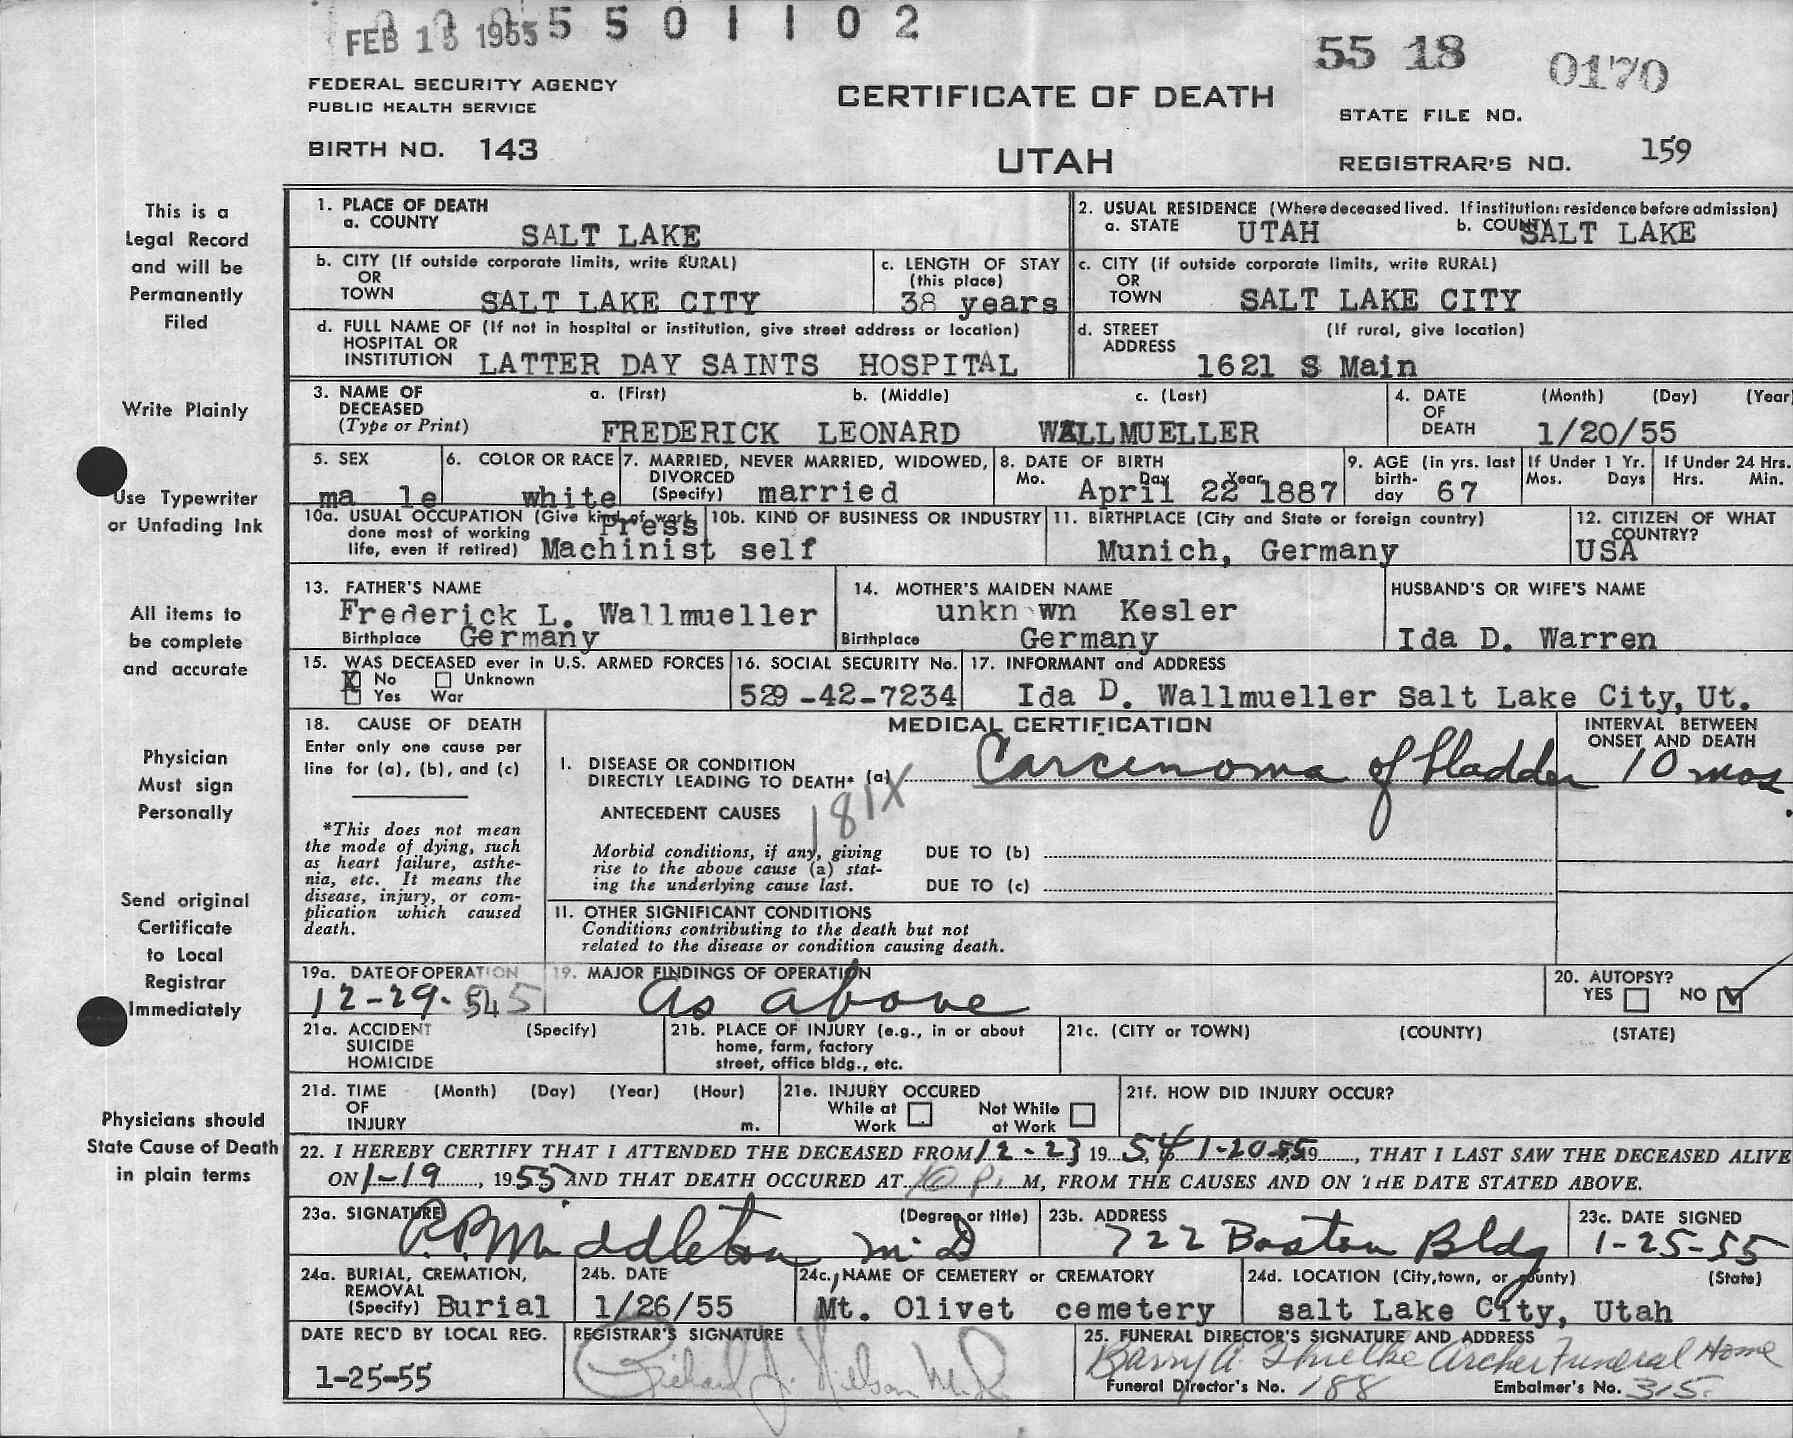 FEB 15 1955 5 5 0 1 1 0 2
55 18 0170
FEDERAL SECURITY AGENCY
PUBLIC HEALTH SERVICE
CERTIFICATE OF DEATH
STATE FILE NO.
BIRTH NO. 143
UTAH
REGISTRAR'S NO. 159
This is a
Legal Record
and will be
Permanently
Filed
Write Plainly
Use Typewriter
or Unfading Ink
All items to
be complete
and accurate
Physician
Must sign
Personally
Send original
Certificate
to Local
Registrar
Immediately
Physicians should
State Cause of Death
in plain terms
1. PLACE OF DEATH
a. COUNTY SALT LAKE
2. USUAL RESIDENCE (Where deceased lived. If institution: residence before admission)
a. STATE UTAH b. COUNTY SALT LAKE
b. CITY (If outside corporate limits, write RURAL)
OR
TOWN SALT LAKE CITY
c. LENGTH OF STAY
(this place)
38 years
c. CITY (if outside corporate limits, write RURAL)
OR
TOWN SALT LAKE CITY
d. FULL NAME OF (If not in hospital or institution, give street address or location)
HOSPITAL OR
INSTITUTION LATTER DAY SAINTS HOSPITAL
d. STREET (If rural, give location)
ADDRESS
1621 S Main
3. NAME OF a. (First) b. (Middle) c. (Last)
DECEASED
(Type or Print) FREDERICK LEONARD WALLMUELLER
4. DATE (Month) (Day) (Year)
OF
DEATH 1/20/55
5. SEX
ma le
6. COLOR OR RACE
white
7. MARRIED, NEVER MARRIED, WIDOWED,
DIVORCED
(Specify) married
8. DATE OF BIRTH
Mo. Day Year
April 22 1887
9. AGE (in yrs. last
birth-
day 67
If Under 1 Yr.
Mos. Days
If Under 24 Hrs.
Hrs. Min.
10a. USUAL OCCUPATION (Give kind of work
done most of working
life, even if retired) Press
Machinist
10b. KIND OF BUSINESS OR INDUSTRY
self
11. BIRTHPLACE (City and State or foreign country)
Munich, Germany
12. CITIZEN OF WHAT
COUNTRY?
USA
13. FATHER'S NAME
Frederick L. Wallmueller
Birthplace Germany
14. MOTHER'S MAIDEN NAME
unkn wn Kesler
Birthplace Germany
HUSBAND'S OR WIFE'S NAME
Ida D. Warren
15. WAS DECEASED ever in U.S. ARMED FORCES
X No Unknown
Yes War
16. SOCIAL SECURITY No.
529-42-7234
17. INFORMANT and ADDRESS
Ida D. Wallmueller Salt Lake City, Ut.
18. CAUSE OF DEATH
Enter only one cause per
line for (a), (b), and (c)
*This does not mean
the mode of dying, such
as heart failure, asthe-
nia, etc. It means the
disease, injury, or com-
plication which caused
death.
MEDICAL CERTIFICATION
INTERVAL BETWEEN
ONSET AND DEATH
I. DISEASE OR CONDITION
DIRECTLY LEADING TO DEATH* (a) Carcinoma of bladder 10 mos.
181X
ANTECEDENT CAUSES
Morbid conditions, if any, giving
rise to the above cause (a) stat-
ing the underlying cause last.
DUE TO (b)
DUE TO (c)
II. OTHER SIGNIFICANT CONDITIONS
Conditions contributing to the death but not
related to the disease or condition causing death.
19a. DATE OF OPERATION
12-29-54
19. MAJOR FINDINGS OF OPERATION
as above
20. AUTOPSY?
YES NO
21a. ACCIDENT (Specify)
SUICIDE
HOMICIDE
21b. PLACE OF INJURY (e.g., in or about
home, farm, factory
street, office bldg., etc.
21c. (CITY or TOWN) (COUNTY) (STATE)
21d. TIME (Month) (Day) (Year) (Hour)
OF
INJURY m.
21e. INJURY OCCURED
While at Work
Not While at Work
21f. HOW DID INJURY OCCUR?
22. I HEREBY CERTIFY THAT I ATTENDED THE DECEASED FROM 12-23 19 54 1-20-55 19, THAT I LAST SAW THE DECEASED ALIVE
ON 1-19, 1955 AND THAT DEATH OCCURED AT 10 P. M, FROM THE CAUSES AND ON THE DATE STATED ABOVE.
23a. SIGNATURE (Degree or title)
R.P. Middleton M.D
23b. ADDRESS
722 Boston Bldg
23c. DATE SIGNED
1-25-55
24a. BURIAL, CREMATION,
REMOVAL
(Specify) Burial
24b. DATE
1/26/55
24c. NAME OF CEMETERY or CREMATORY
Mt. Olivet cemetery
24d. LOCATION (City, town, or county) (State)
salt Lake City, Utah
DATE REC'D BY LOCAL REG.
1-25-55
REGISTRAR'S SIGNATURE
Richard J. Nelson
25. FUNERAL DIRECTOR'S SIGNATURE AND ADDRESS
Barry A. Thielke Archer Funeral Home
Funeral Director's No. 188 Embalmer's No. 315.